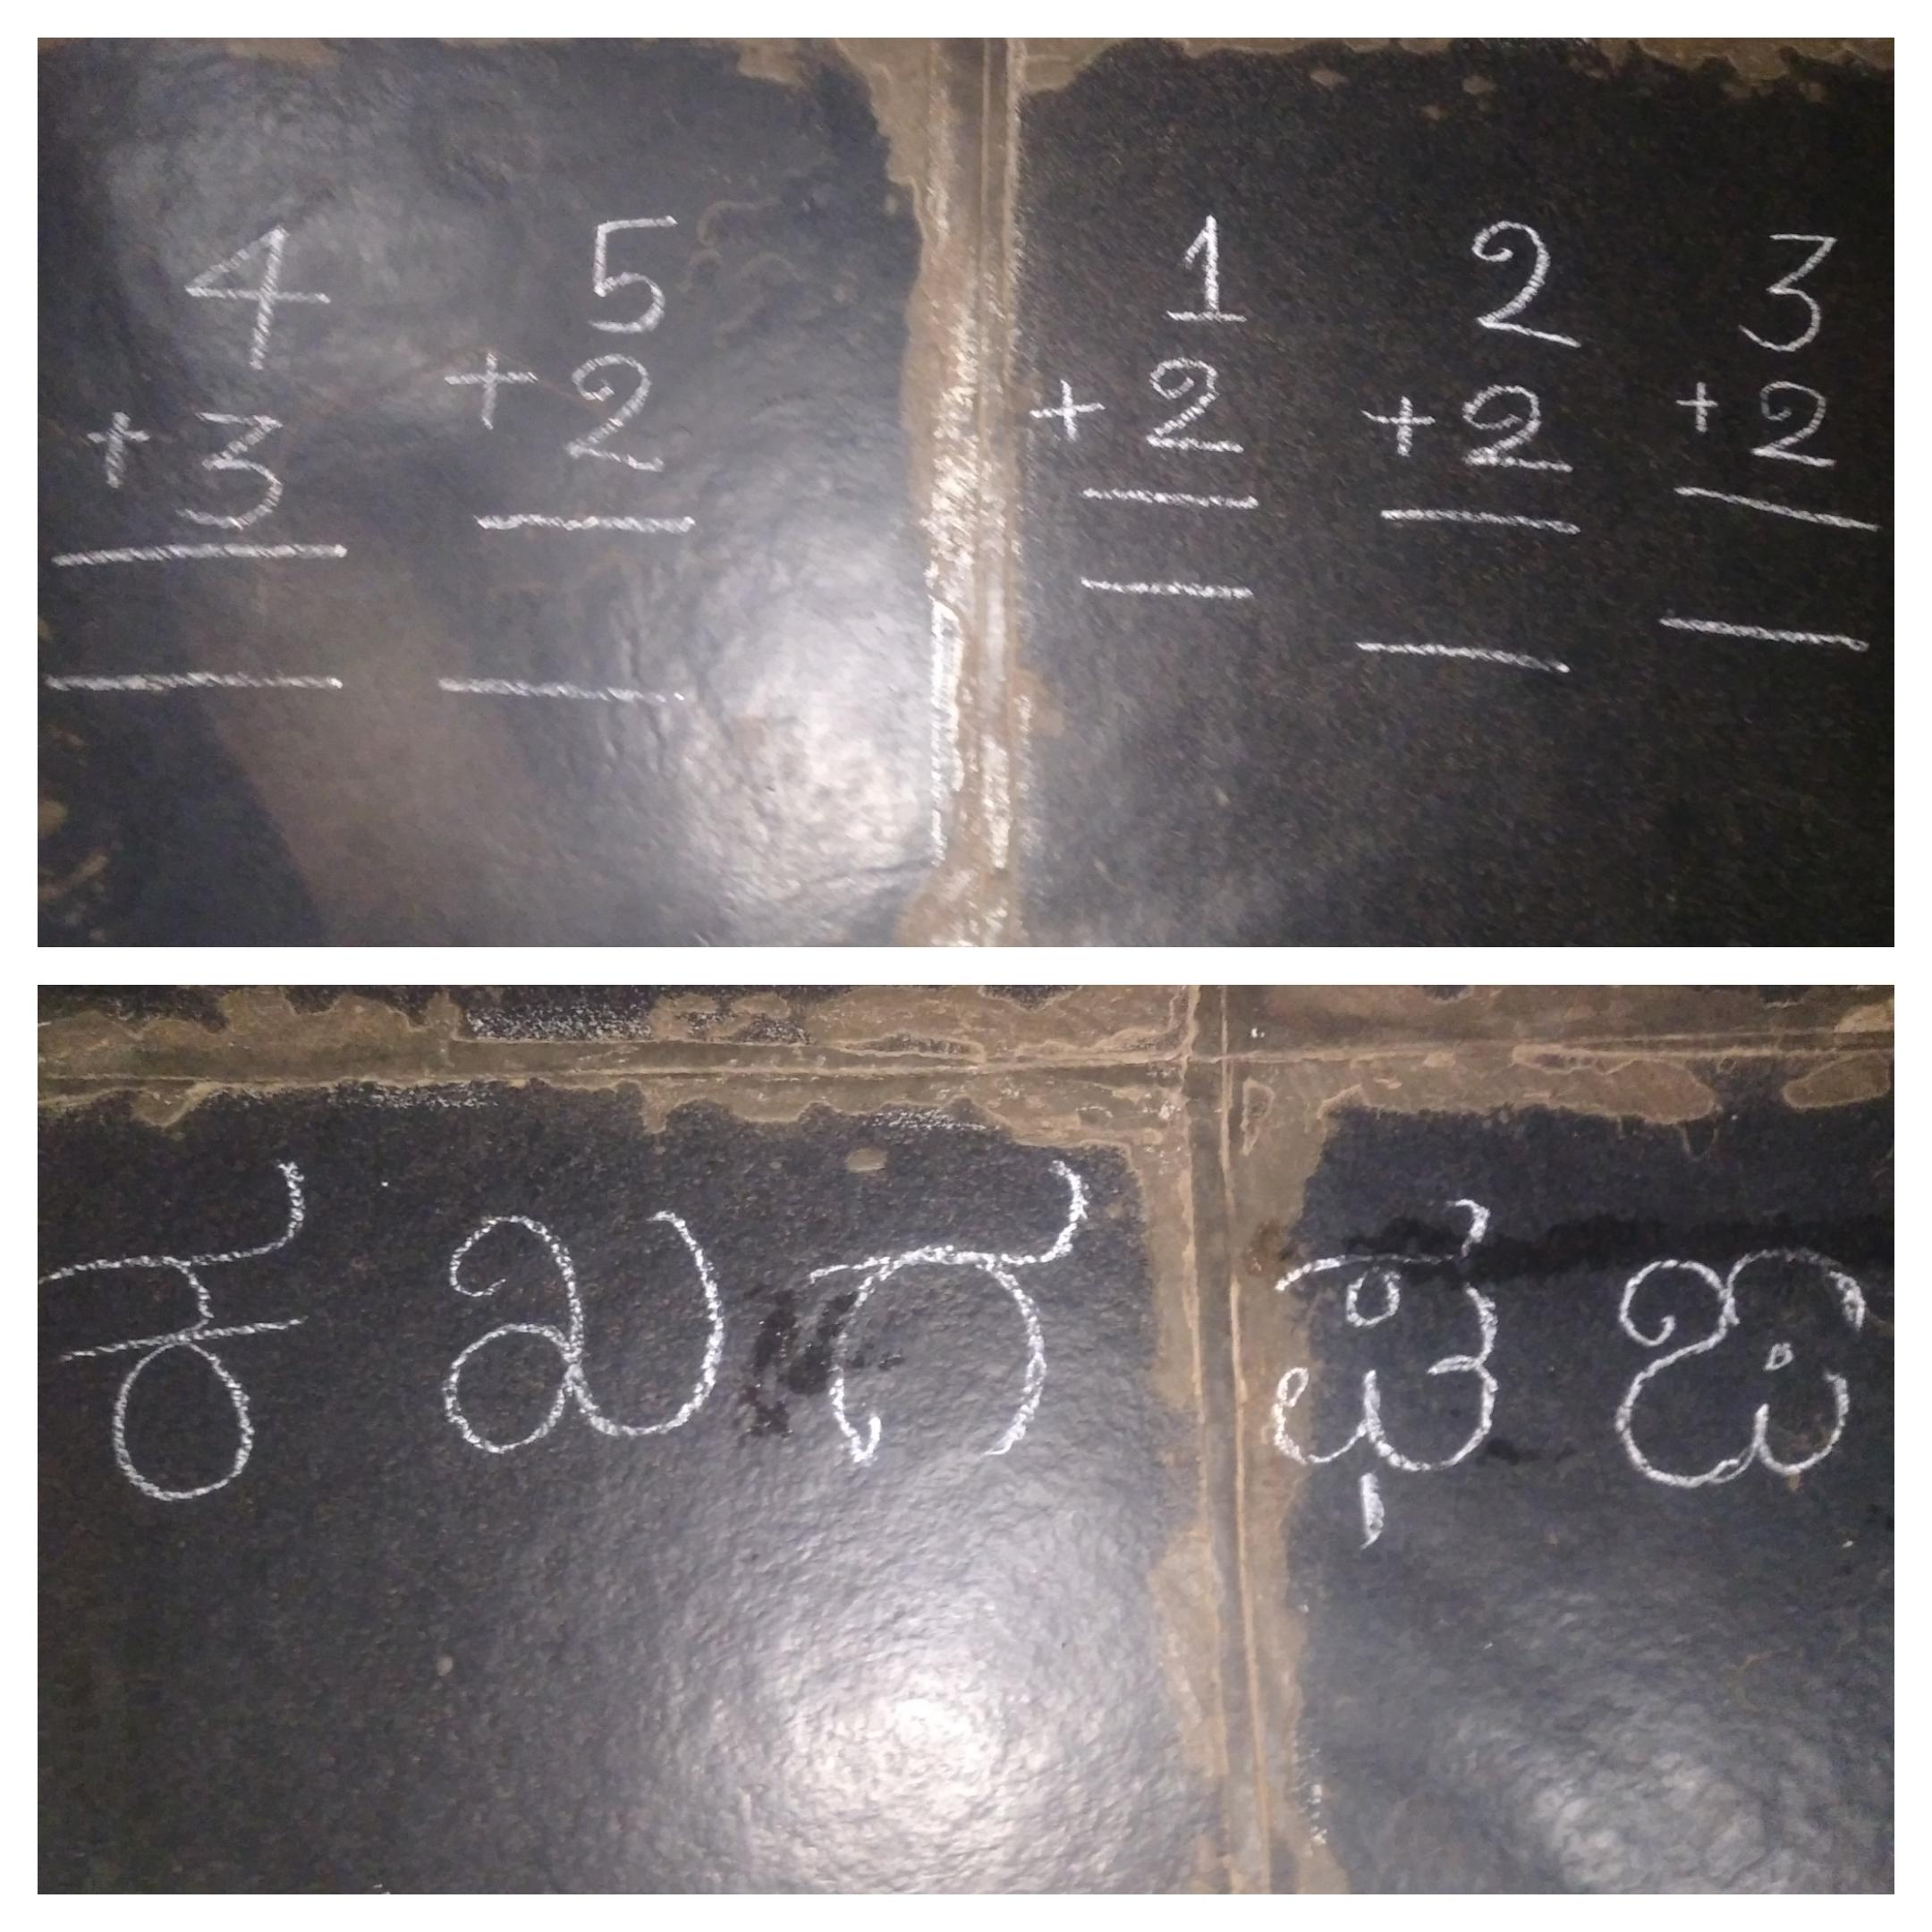 4 5 1 2 3
+3 +2 +2 +2 +2
ಕ ಖ ಗ ಘ ಙ